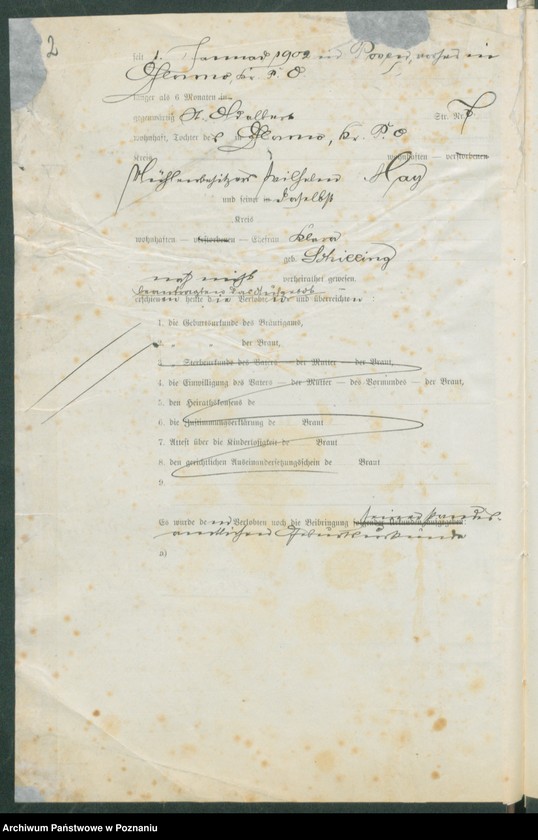 2
seit 1. Januar 1902 in Posen, vorher in
Glowno, Kr. P. O
länger als 6 Monaten in
gegenwärtig St. Adalbert Str. Nr. 7
wohnhaft, Tochter des in Glowno, Kr. P. O
Kreis wohnhaften — verstorbenen
Mühlenbesitzers Wilhelm May
und seiner in daselbst
Kreis
wohnhaften — verstorbenen — Ehefrau Klara
geb. Schilling
noch nicht verheirathet gewesen.
erschienen heute die Verlobten und überreichten :
1. die Geburtsurkunde des Bräutigams,
2. " " der Braut,
3. " Sterbeurkunde des Vaters — der Mutter — der Braut,
4. die Einwilligung des Vaters — der Mutter — des Vormundes — der Braut,
5. den Heirathskonsens de
6. die Zustimmungserklärung de Braut
7. Attest über die Kinderlosigkeit de Braut
8. den gerichtlichen Auseinandersetzungsschein de Braut
9.
Es wurde den Verlobten noch die Beibringung seiner standes-
amtlichen Geburtsurkunde
a)
Archiwum Państwowe w Poznaniu